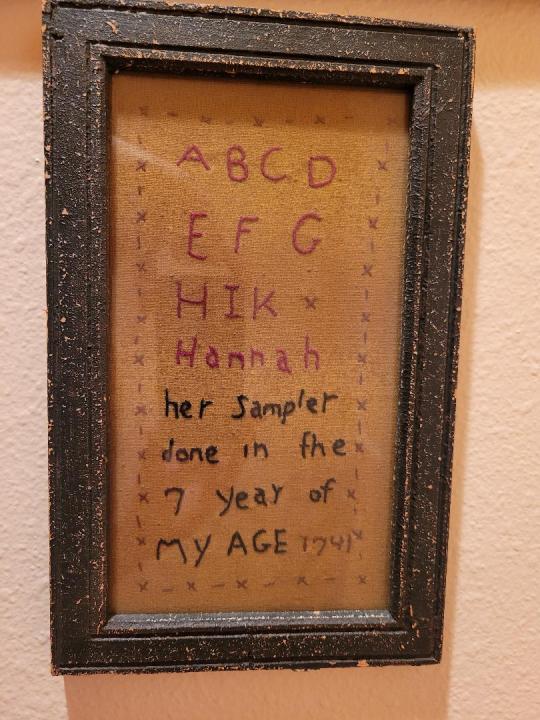 A B C D
E F G
H I K x
Hannah
her sampler
done in the
7 year of
MY AGE 1741